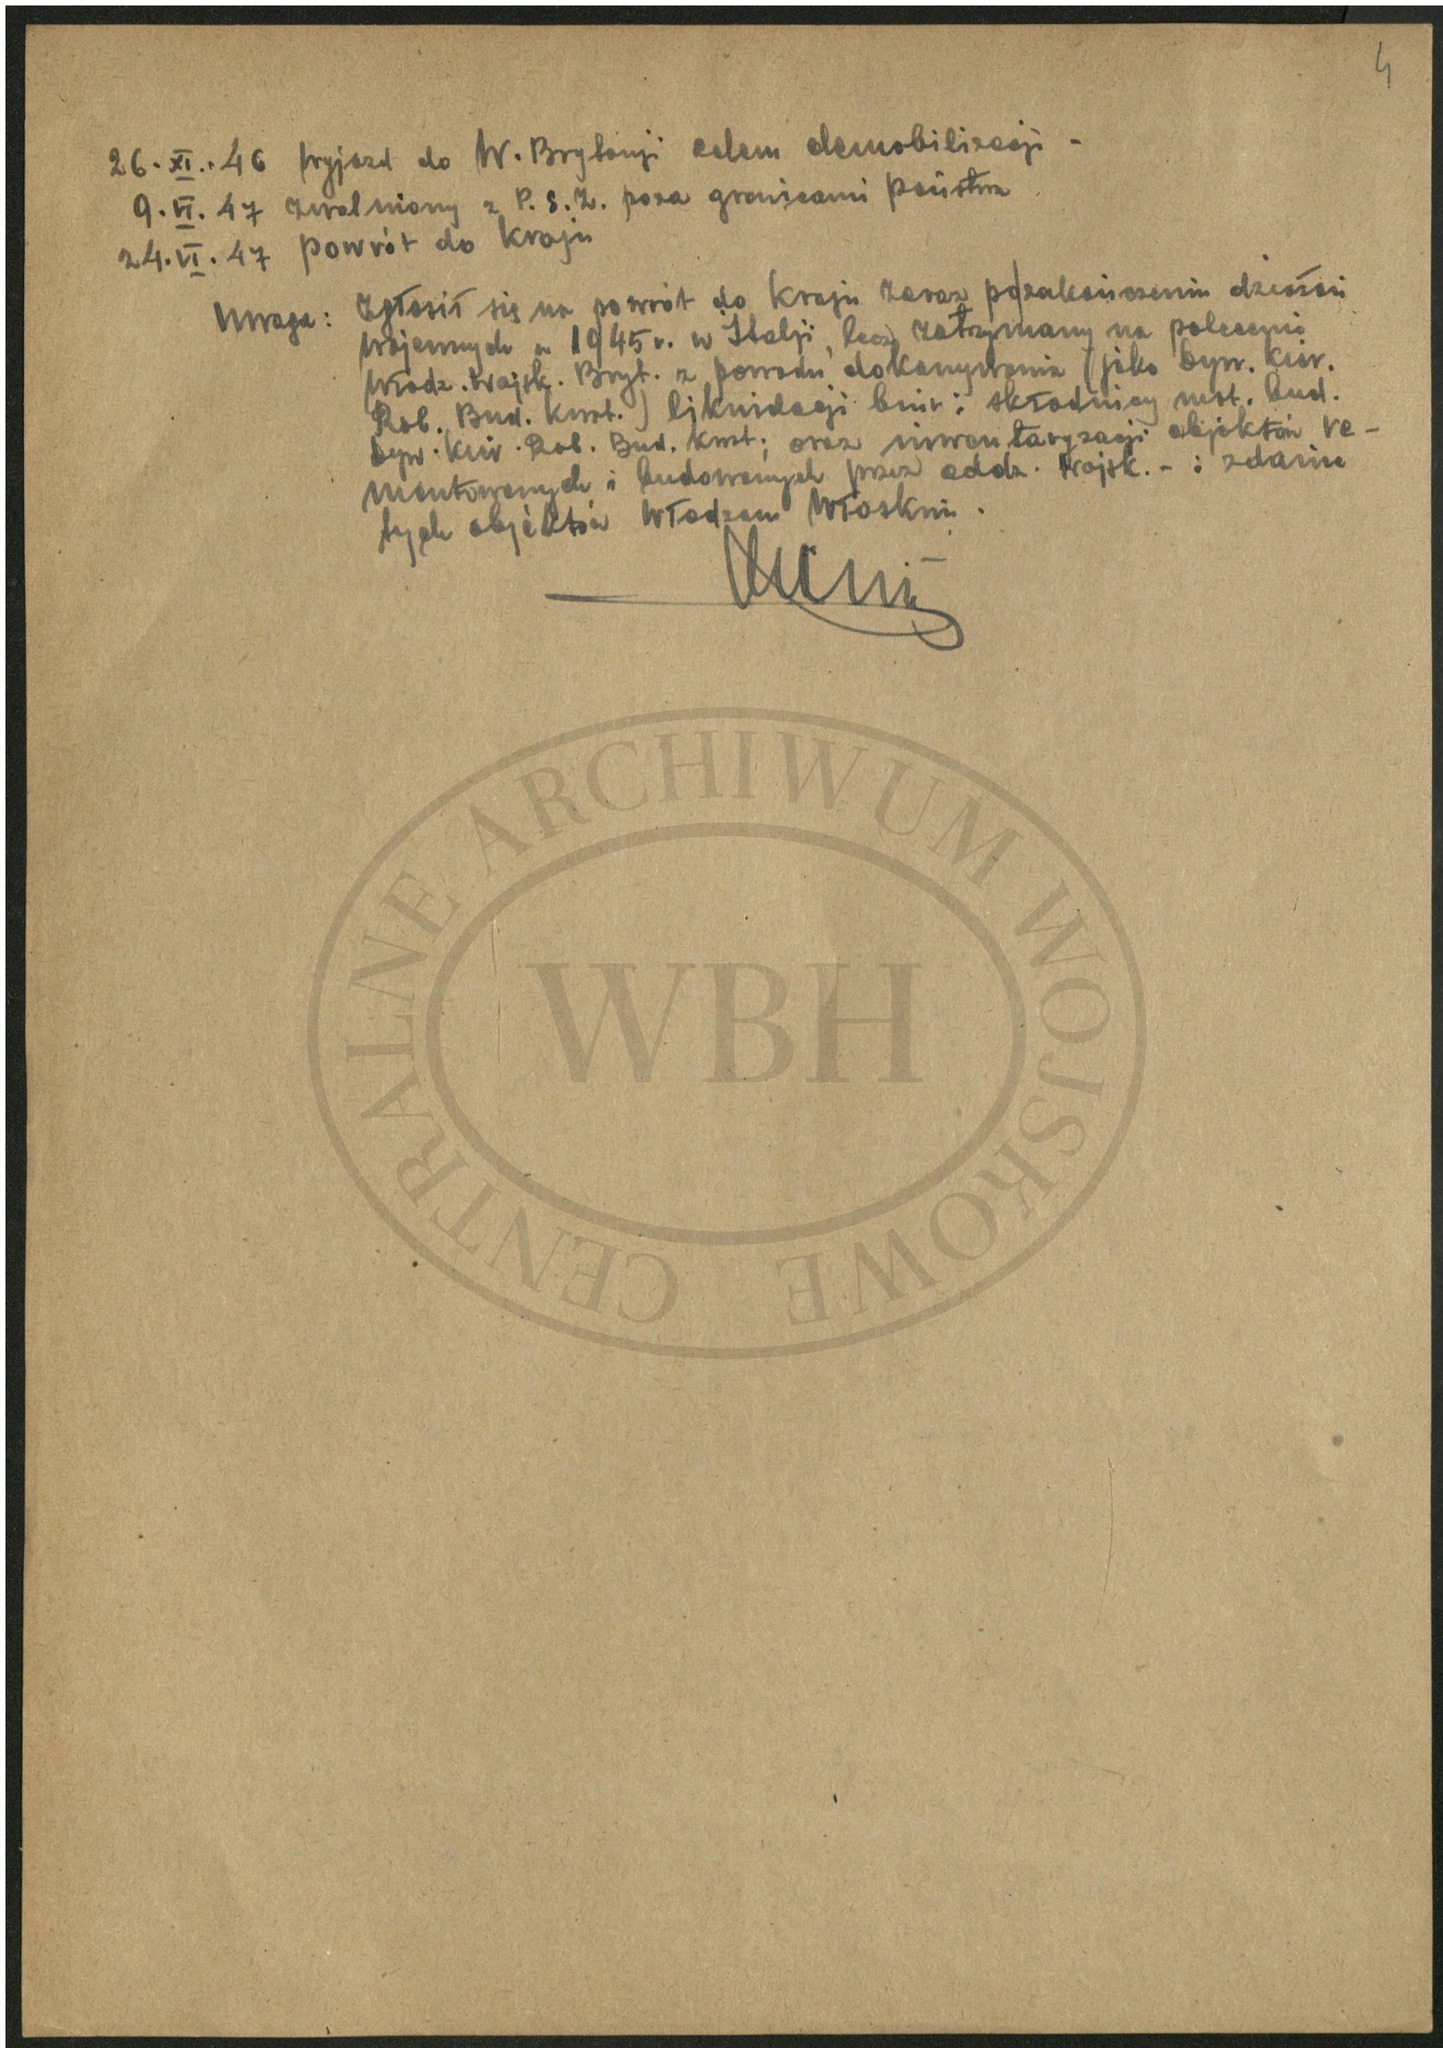 4
26.XI.46 przyjazd do W. Brytanji celem demobilizacji -
9.VI.47 zwolniony z P.S.Z. poza granicami państwa
24.VI.47 powrót do kraju
Uwaga: Zgłosił się na powrót do kraju zaraz po zakończeniu działań
wojennych w 1945 r. w Italji, lecz zatrzymany na polecenie
Władz. Wojsk. Bryt. z powodu dokonywania (jako Dyw. Kier.
Rob. Bud. Kwat.) likwidacji biur i składnicy mat. bud.
Dyw. Kier. Rob. Bud. Kwat; oraz inwentaryzacji objektów re-
montowanych i budowanych przez oddz. Wojsk. - i zdanie
tych objektów Władzom Włoskim.
CENTRALNE ARCHIWUM WOJSKOWE
WBH